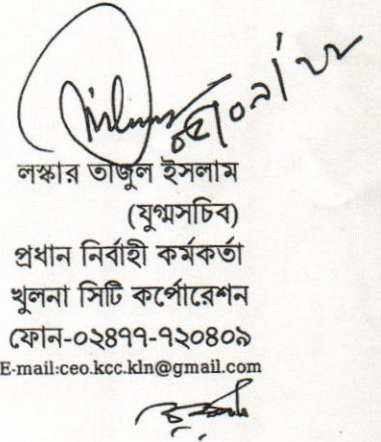 লস্কার তাজুল ইসলাম
(যুগ্মসচিব)
প্রধান নির্বাহী কর্মকর্তা
খুলনা সিটি কর্পোরেশন
ফোন-০২৪৭৭-৭২০৪০৯
E-mail:ceo.kcc.kln@gmail.com